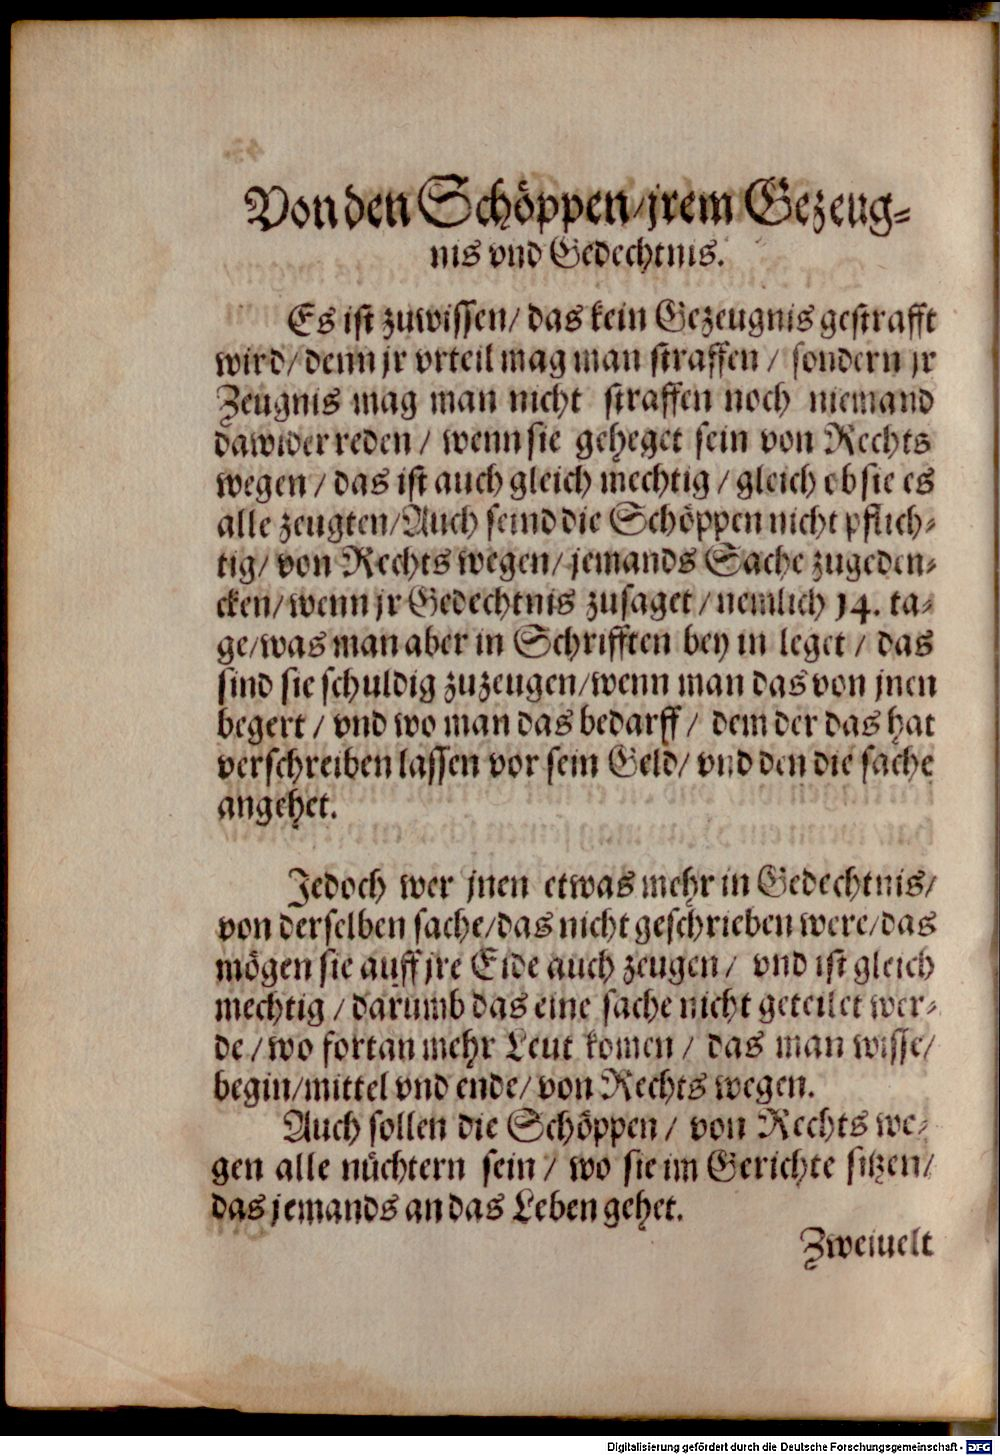 Von den Schöppen/jrem Gezeug-
nis vnd Gedechtnis.
Es ist zuwissen/ das kein Gezeugnis gestrafft
wird/ denn jr vrteil mag man straffen/ sondern jr
Zeugnis mag man nicht straffen noch niemand
dawider reden/ wenn sie geheget sein von Rechts
wegen/ das ist auch gleich mechtig/ gleich ob sie es
alle zeugten/Auch seind die Schöppen nicht pflich-
tig/ von Rechts wegen/ jemands Sache zugeden-
cken/wenn jr Gedechtnis zusaget/nemlich 14. ta-
ge/was man aber in Schrifften bey in leget/ das
sind sie schuldig zuzeugen/wenn man das von jnen
begert/ vnd wo man das bedarff/ dem der das hat
verschreiben lassen vor sein Geld/ vnd den die sache
angehet.
Jedoch wer jnen etwas mehr in Gedechtnis/
von derselben sache/das nicht geschrieben were/das
mögen sie auff jre Eide auch zeugen/ vnd ist gleich
mechtig/ darumb das eine sache nicht geteilet wer-
de/ wo fortan mehr Leut komen/ das man wisse/
begin/mittel vnd ende/ von Rechts wegen.
Auch sollen die Schöppen/ von Rechts we-
gen alle nüchtern sein/ wo sie im Gerichte sitzen/
das jemands an das Leben gehet.
Zweiuelt
Digitalisierung gefördert durch die Deutsche Forschungsgemeinschaft - DFG